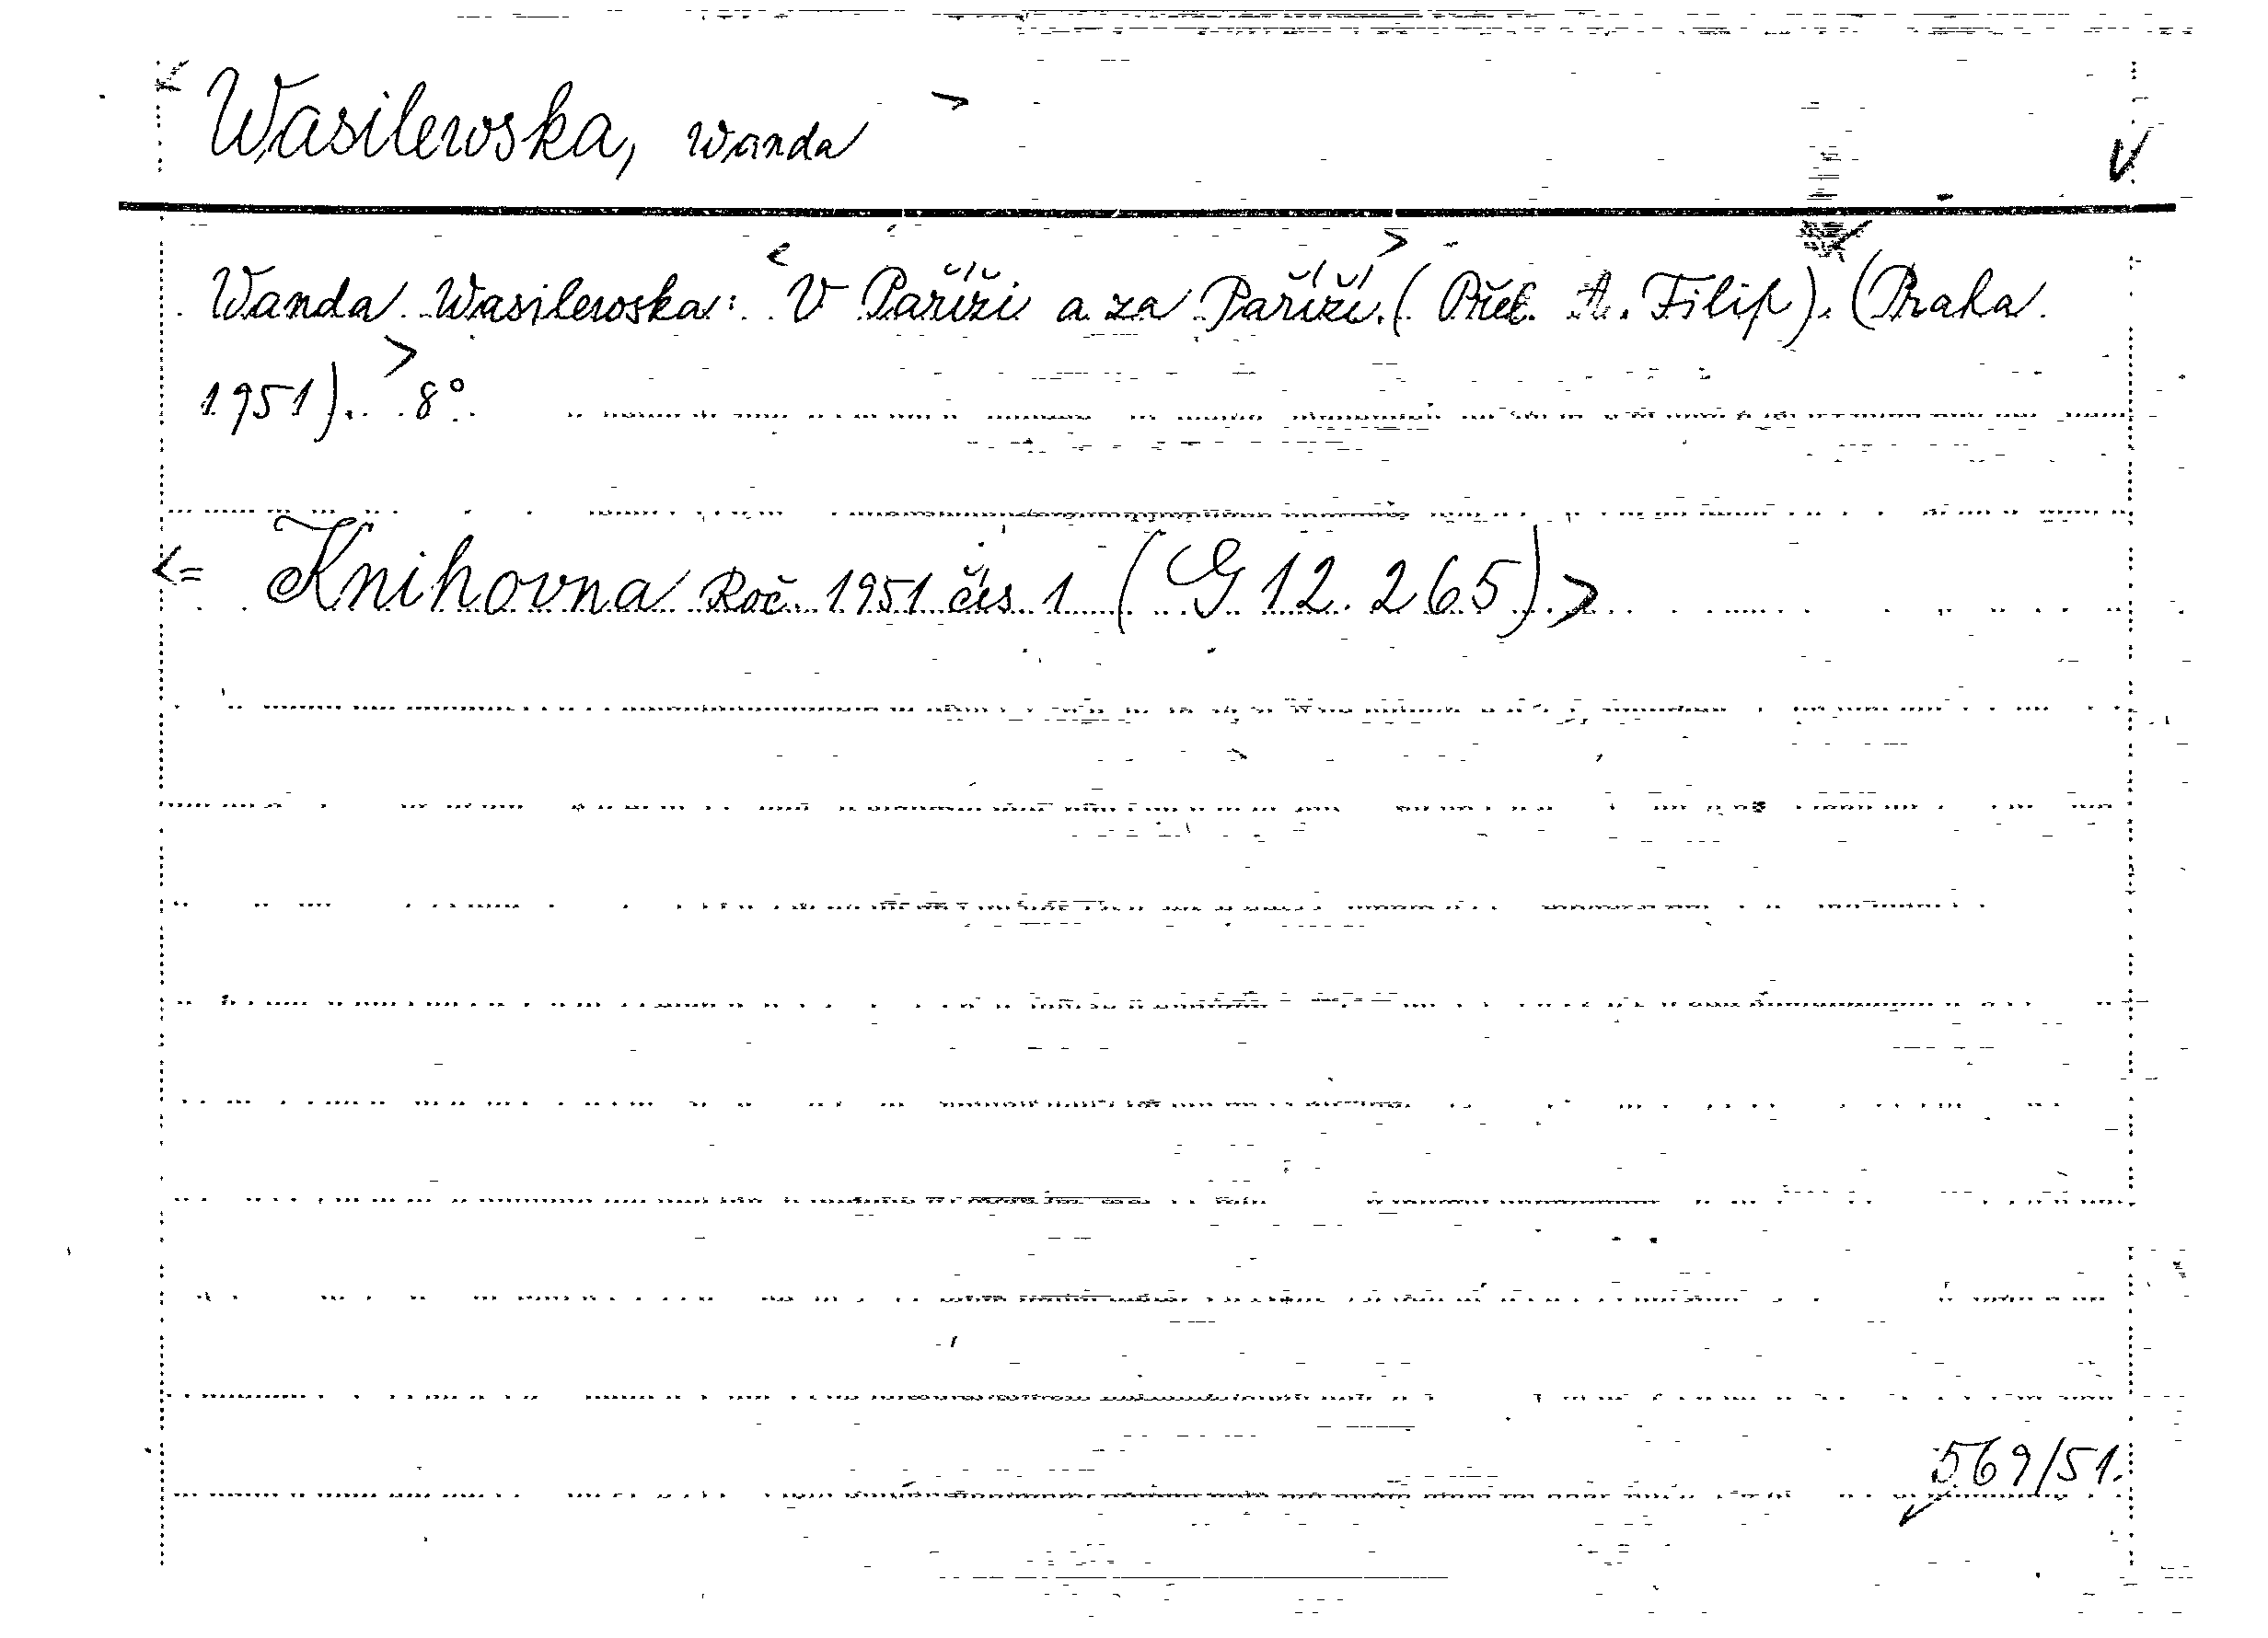 Wasilewska, Wanda
Wanda Wasilewska: V Paříži a za Paříží. (Přel. A. Filip). (Praha
1951). 8°.
= Knihovna Roč. 1951 čís 1 (G 12.265)
569/51.